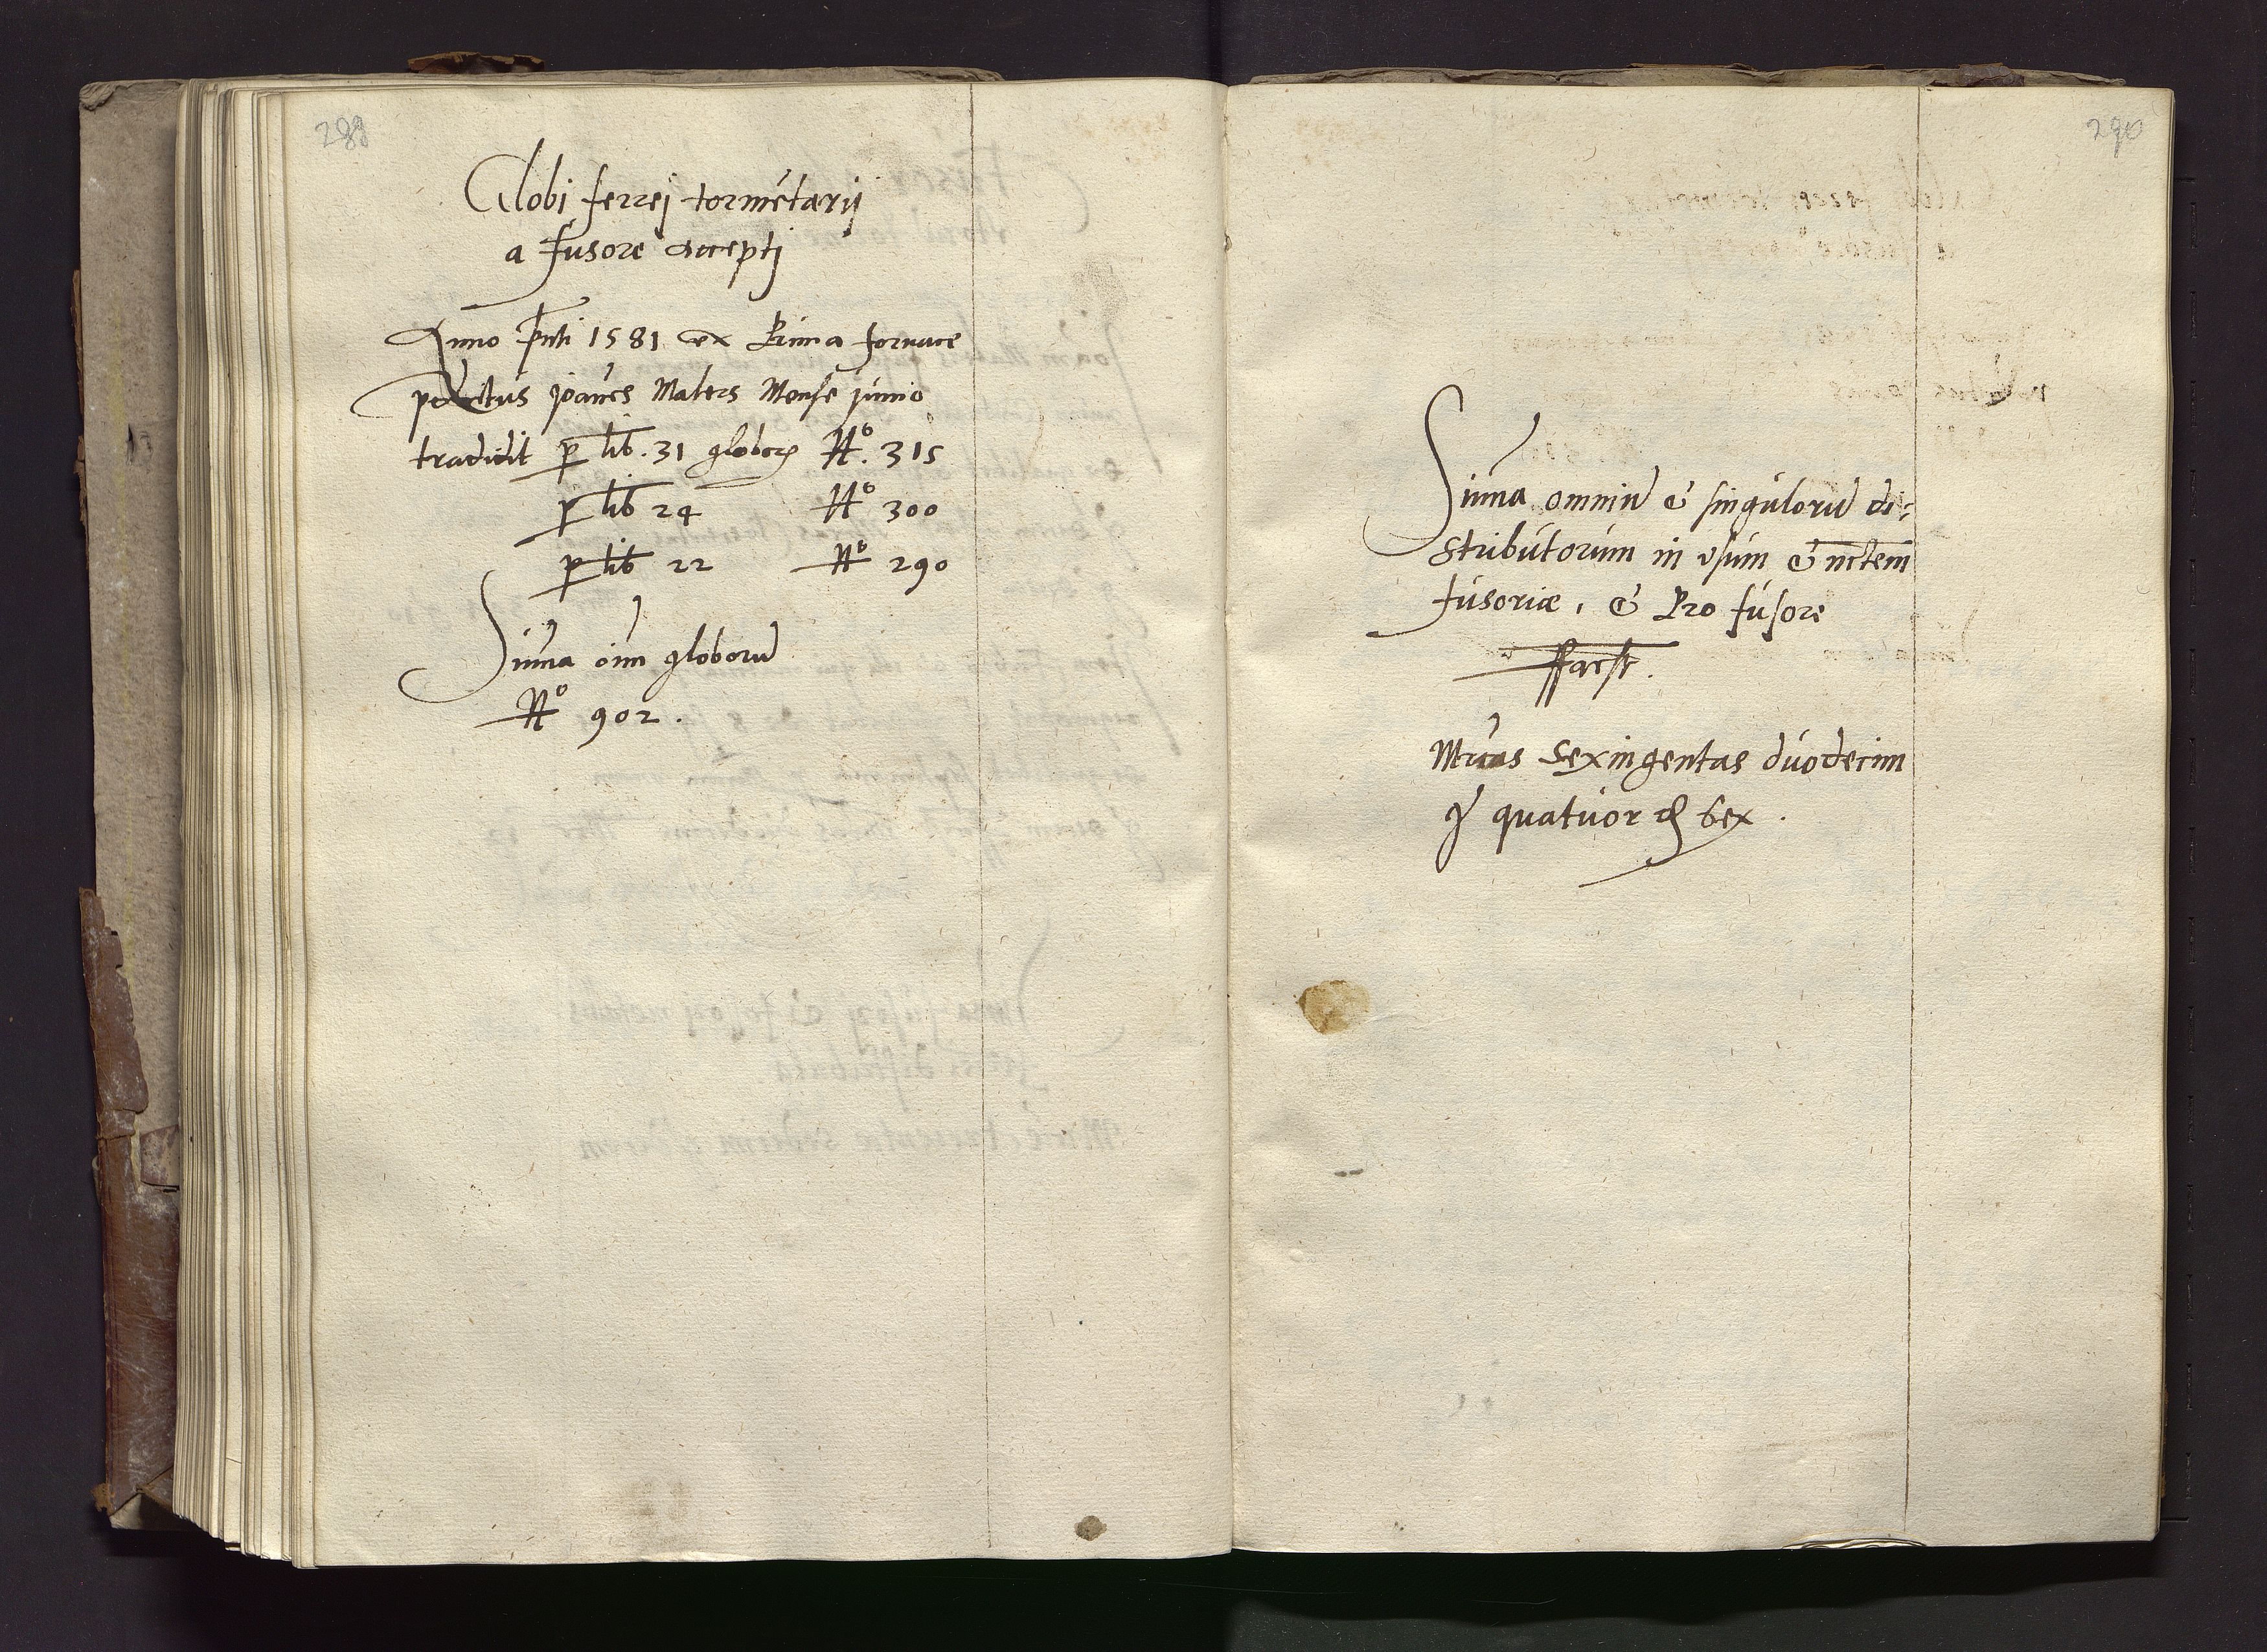 289
Globi ferrej tormētarij
a fusore acceptj
Anno Pñti 1581 ex Prima fornace
p̄dictus joānes Maters Mense junio
tradidit p lib. 31 globor N.º 315
p lib 24 Nº 300
p lib 22 Nº 290
Suma oīm globorū
Nº 902.
290
Suma omniū & singulorū di:
stributorum in vsum & nctem
fusoriæ, & Pro fusore
ffacit.
Mrcas Sexingentas duodecim
gr quatuor sex.